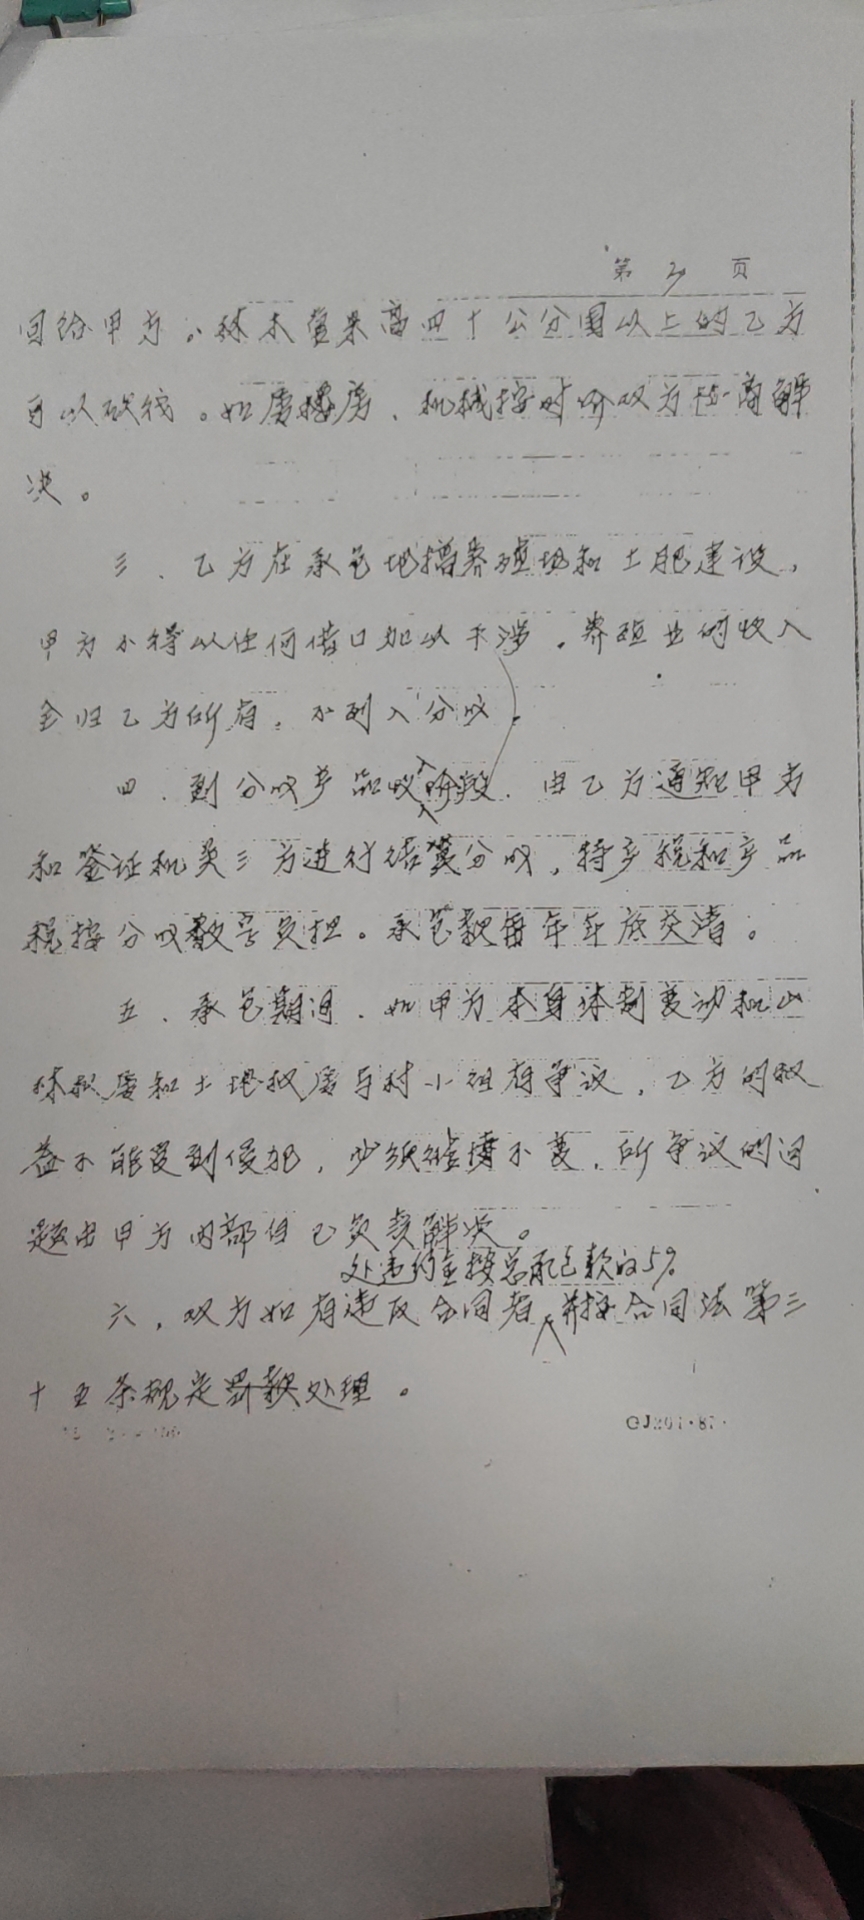 第 3 页
回给甲方。林木
高四十公分围以上的乙方
可以砍伐。如属
房、机械按时价双方协商解
决。
三、乙方在承包地搞养殖场和土肥建设，
甲方不得以任何借口加以干涉。养殖业的收入
全归乙方所有。不列入分收。
四、到分收产品收入阶段，由乙方通知甲方
和签证机关三方进行结算分收，特产税和产品
税按分收数字负担。承包款每年年底交清。
五、承包期间、如甲方本身体制变动和山
林权属和土地权属与村小组有争议，乙方的权
益不能受到侵犯，
不变，所争议的问
题由甲方内部自己负责解决。
处违约金按总承包款的5%
六、双方如有违反合同者，并按合同法第三
十五条规定罚款处理。